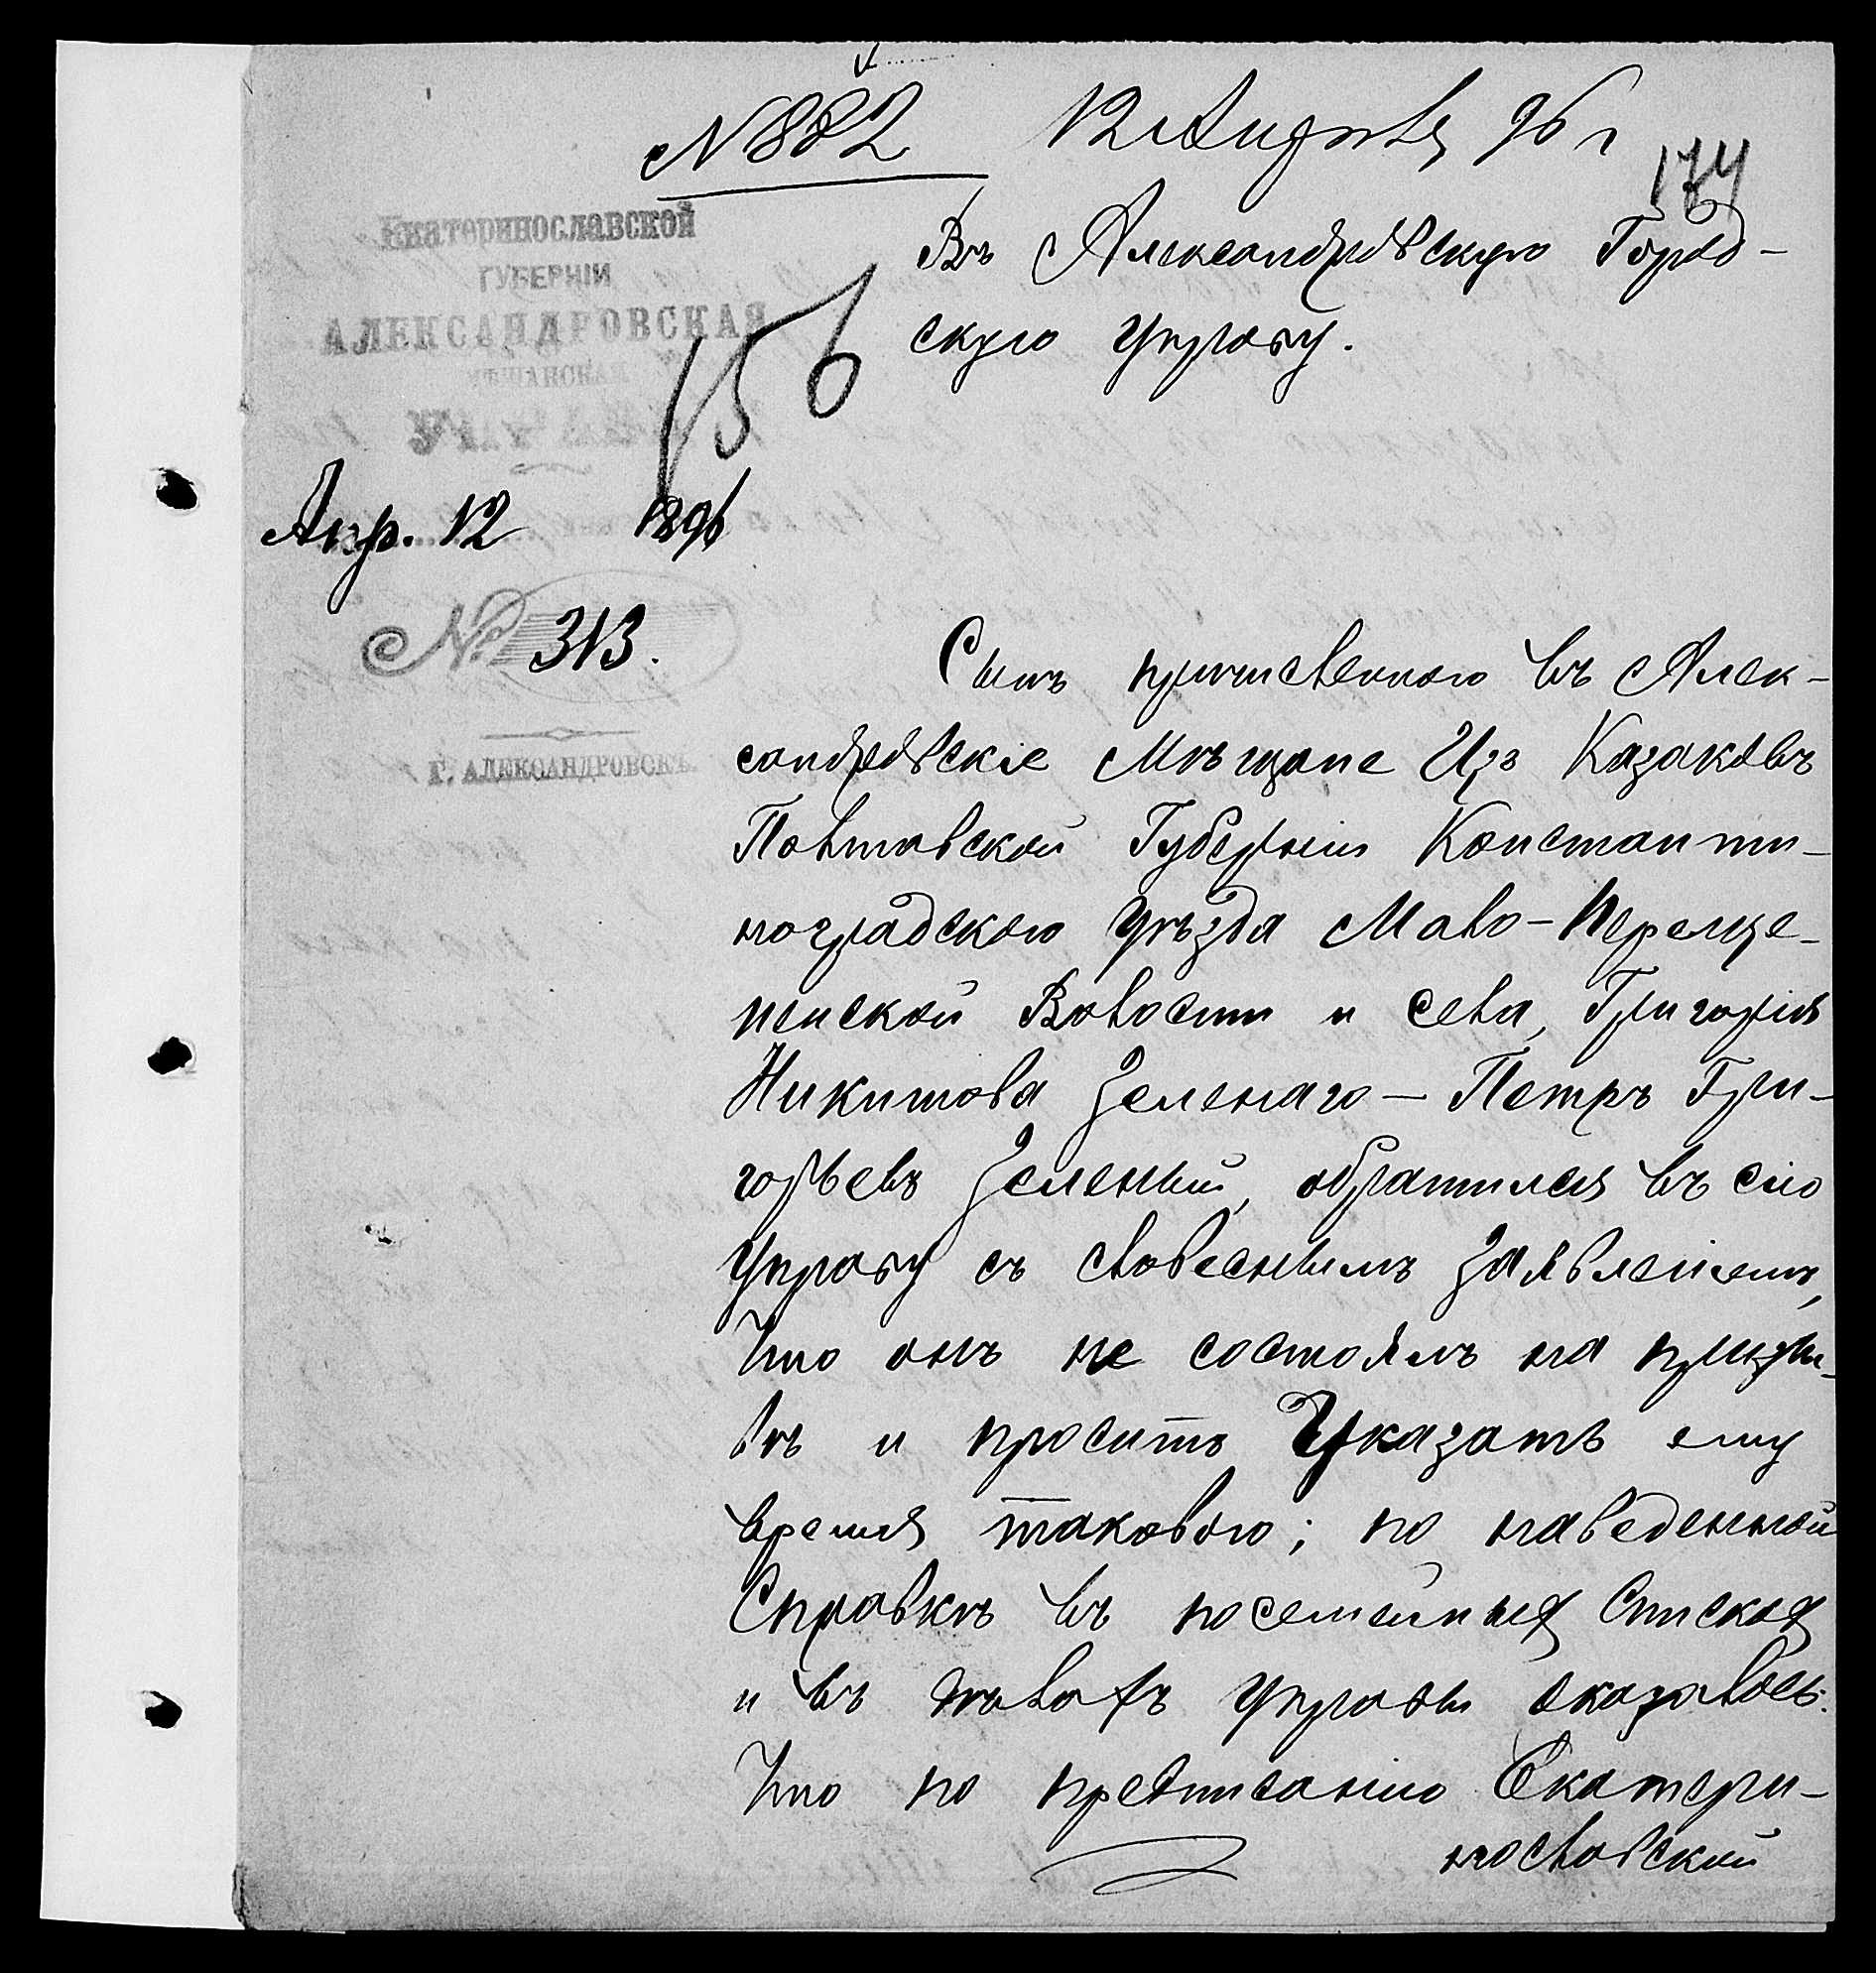 № 882 12 Апрѣля 96 г
174
Екатеринославской
ГУБЕРНІИ
АЛЕКСАНДРОВСКАЯ
МѢЩАНСКАЯ
УПРАВА
156
Апр. 12 1896
№ 313.
Г. АЛЕКСАНДРОВСКЪ.
Въ Александровскую Город-
скую Управу.
Сынъ причисленного въ Алек-
сандровскіе Мѣщане Изъ Казаковъ
Полтавской Губерніи Константи-
ноградского Уѣзда Мало-Переще-
пенской Волости и села, Григорія
Никитова Зеленаго — Петръ Гри-
горьевъ Зеленый, обратился въ сію
Управу съ словеснымъ Заявленіемъ,
Что онъ не состоялъ на призы-
вѣ и просить Указать ему
время такового; по наведенной
Справкѣ въ посемейныхъ Спискахъ
и въ дѣлахъ Управы оказалось:
Что по предписанію Екатери-
нославской